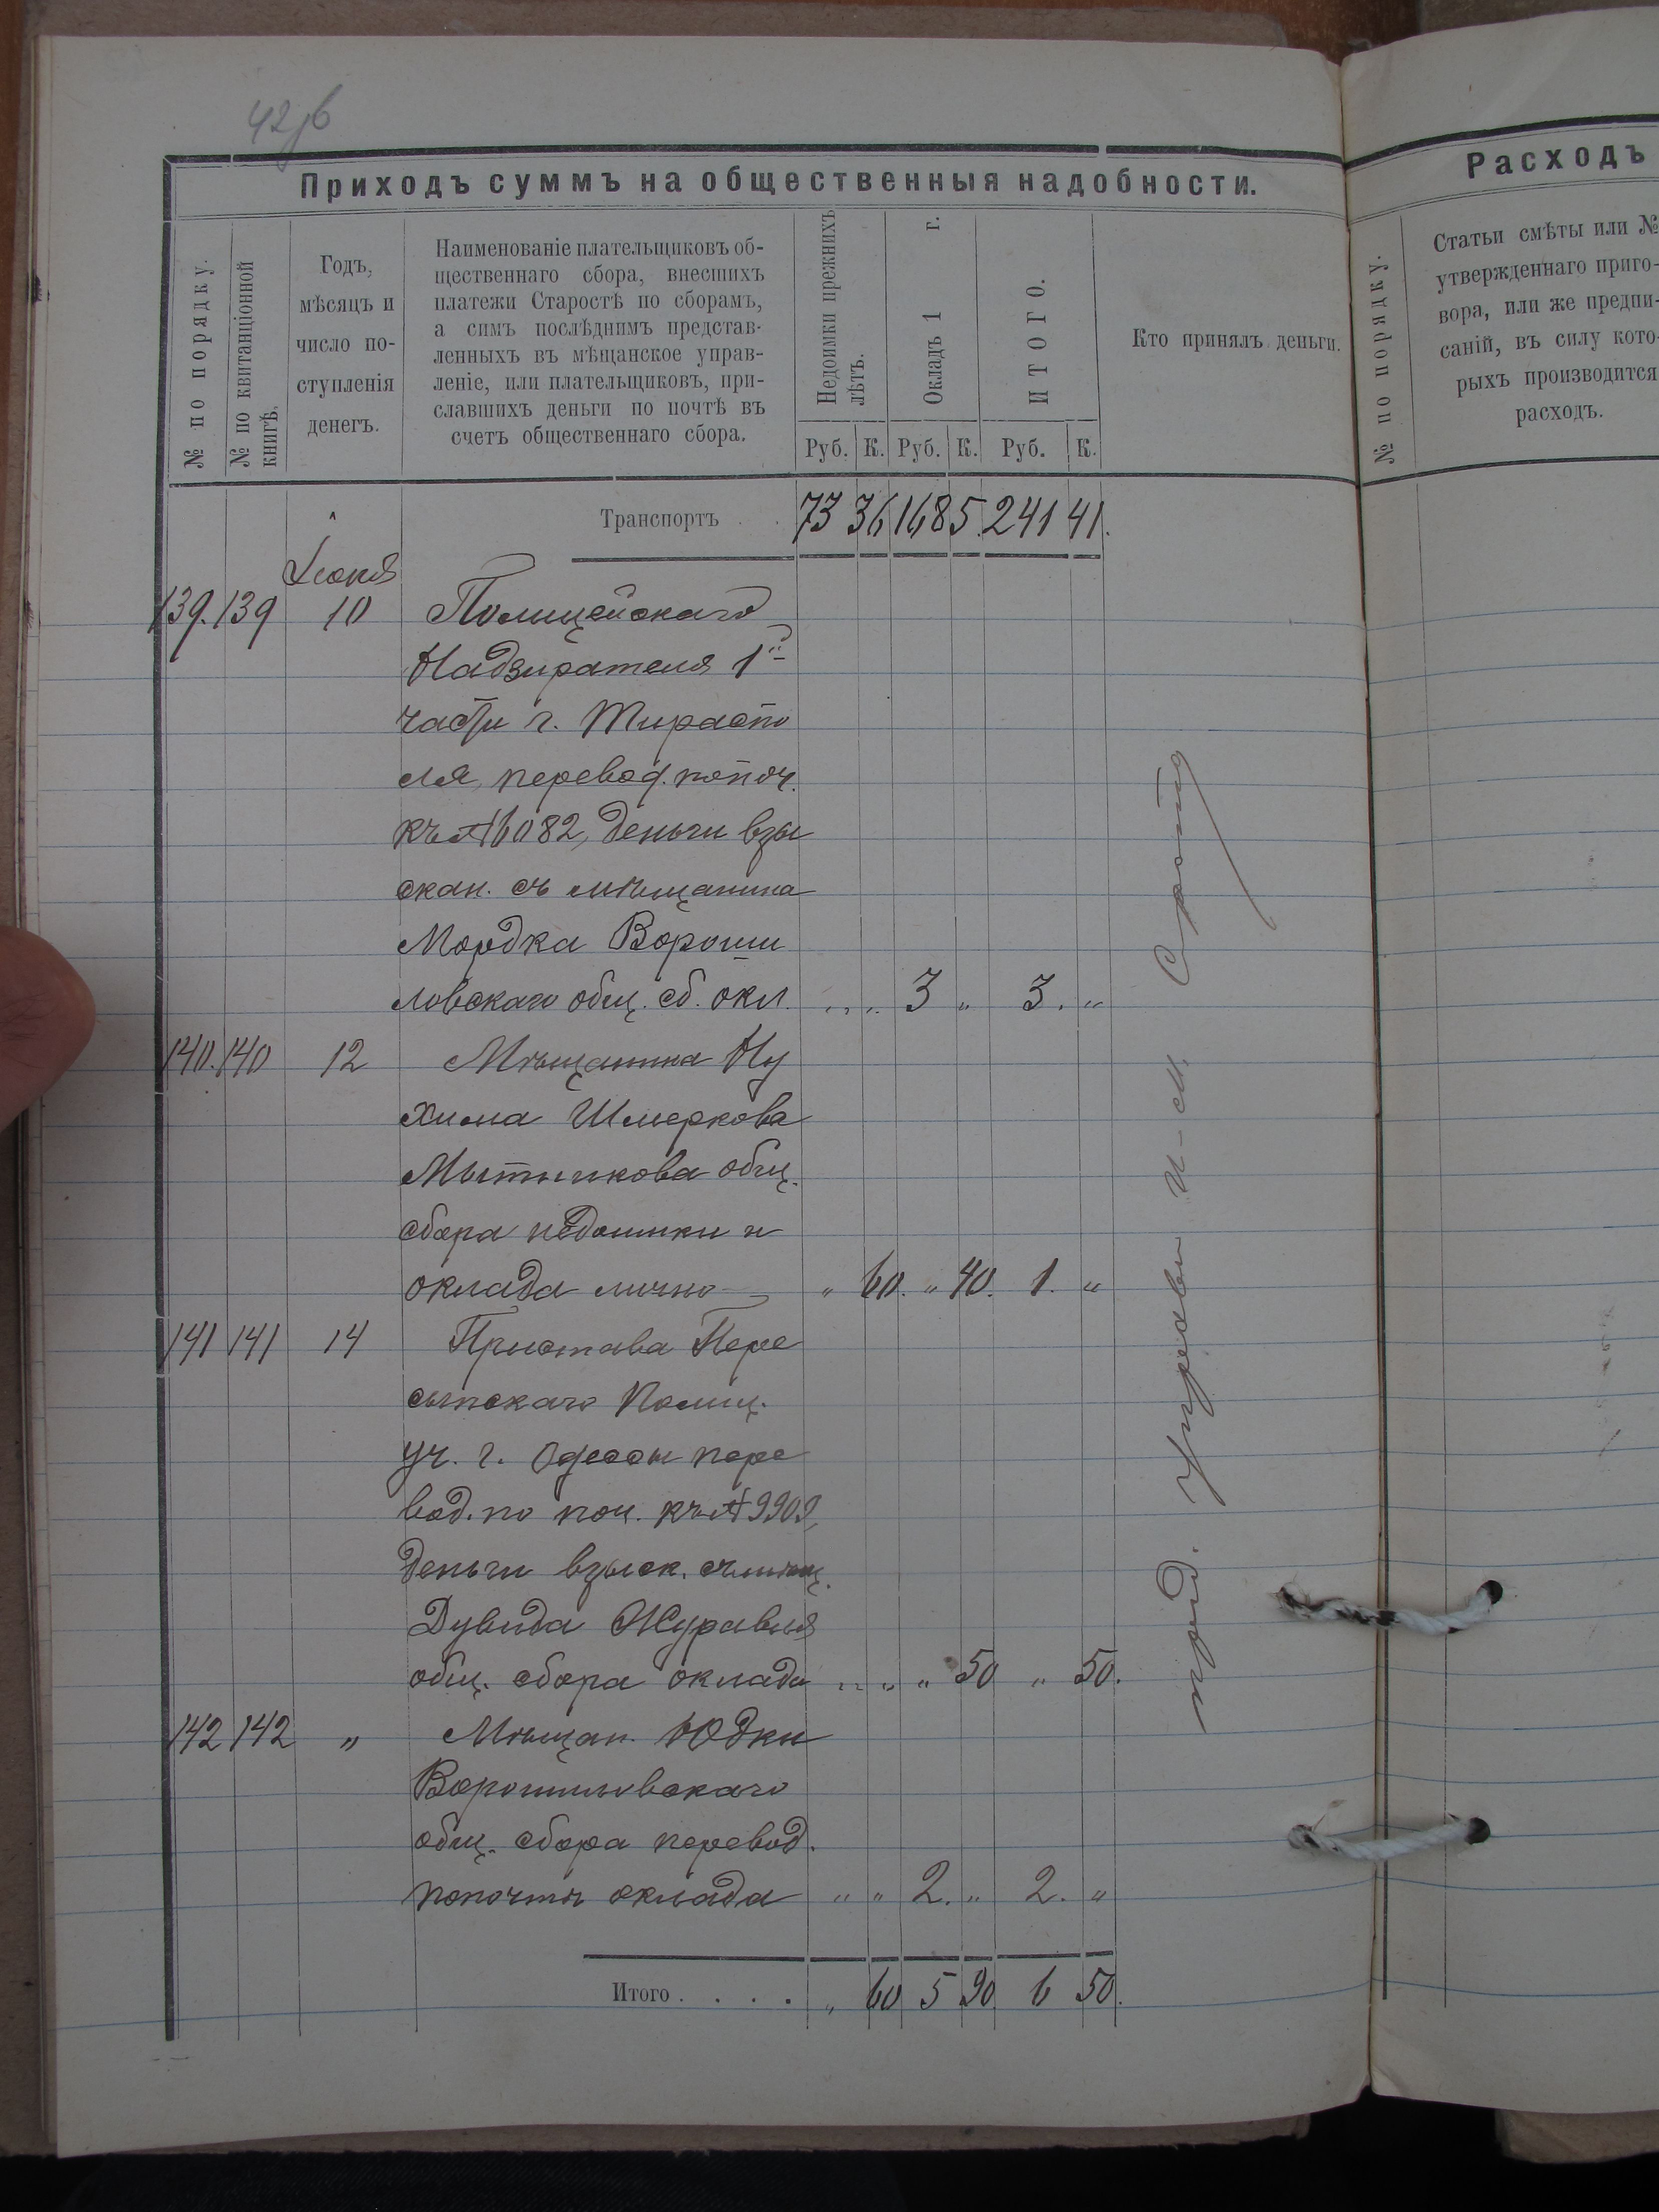 42об
Приходъ суммъ на общественныя надобности.
№ по порядку.
№ по квитанціонной книгѣ.
Годъ,
мѣсяцъ и
число по-
ступленія
денегъ.
Наименованіе плательщиковъ об-
щественнаго сбора, внесшихъ
платежи Старостѣ по сборамъ,
а симъ послѣднимъ представ-
ленныхъ въ мѣщанское управ-
леніе, или плательщиковъ, при-
славшихъ деньги по почтѣ въ
счетъ общественнаго сбора.
Недоимки прежнихъ лѣтъ.
Окладъ 1 г.
ИТОГО.
Руб. К. Руб. К. Руб. К.
Кто принялъ деньги.
Транспортъ . . 73 36 168 5. 241 41.
Іюня
139. 139 10 Полицейскаго
Надзирателя 1й
части г. Тираспо
ля, перевод. по поч.
къ № 6082, деньги взы
скан. съ мѣщанина
Мордка Вороши
ловскаго общ. сб. окл. „ „ 3 „ 3. „
140. 140 12 Мѣщанина Ну
хима Шмеркова
Мытникова общ.
сбора недоимки и
оклада лично „ 60. „ 40. 1. „
141 141 14 Пристава Пере
сыпскаго Полиц.
уч. г. Одессы пере
вод. по поч. къ № 9909,
деньги взыск. съ мѣщ.
Дувида Журавля
общ. сбора оклада „ „ „ 50 „ 50.
142 142 „ Мѣщан. Юдки
Ворошиловскаго
общ. сбора перевод.
по почтѣ оклада „ „ 2. „ 2. „
Итого . . . . „ 60 5 90 6 50.
Управы
Расходъ
№ по порядку.
Статьи смѣты или №
утвержденнаго приго-
вора, или же предпи-
саній, въ силу кото-
рыхъ производится
расходъ.